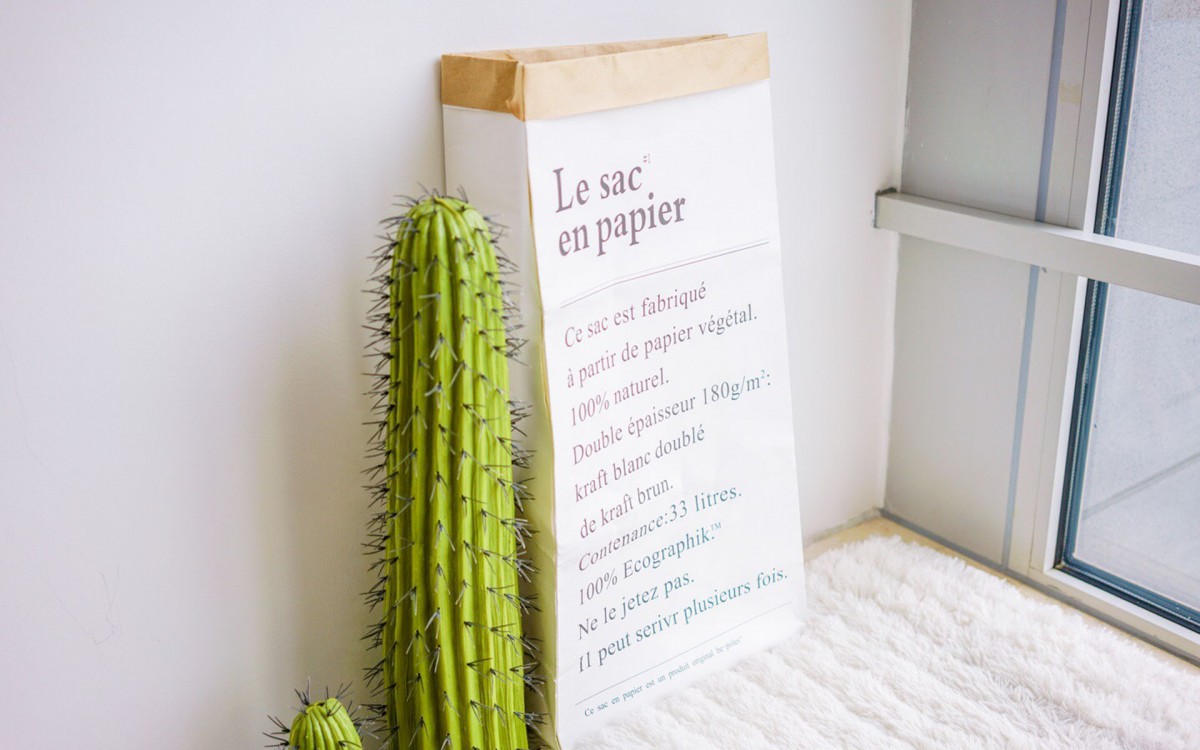 Le sac
en papier
Ce sac est fabriqué
à partir de papier végétal.
100% naturel.
Double épaisseur 180g/m²:
kraft blanc doublé
de kraft brun.
Contenance:33 litres.
100% Ecographik.™
Ne le jetez pas.
Il peut serivr plusieurs fois.
Ce sac en papier est un produit original